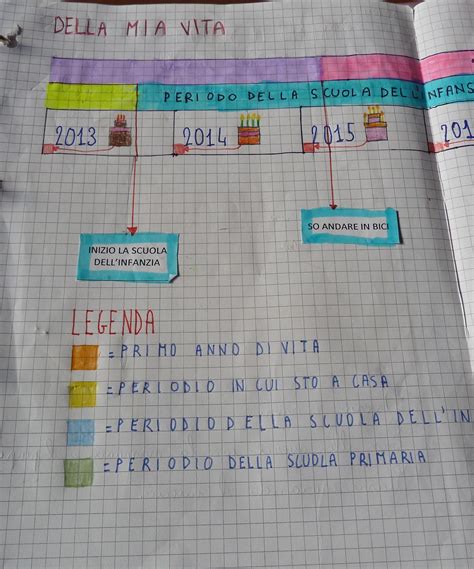 DELLA MIA VITA
PERIODO DELLA SCUOLA DELL'INFANS
2013 2014 2015 201
INIZIO LA SCUOLA
DELL'INFANZIA
SO ANDARE IN BICI
LEGENDA
= PRIMO ANNO DI VITA
= PERIODIO IN CUI STO A CASA
= PERIODIO DELLA SCUOLA DELL'IN
= PERIODIO DELLA SCUOLA PRIMARIA